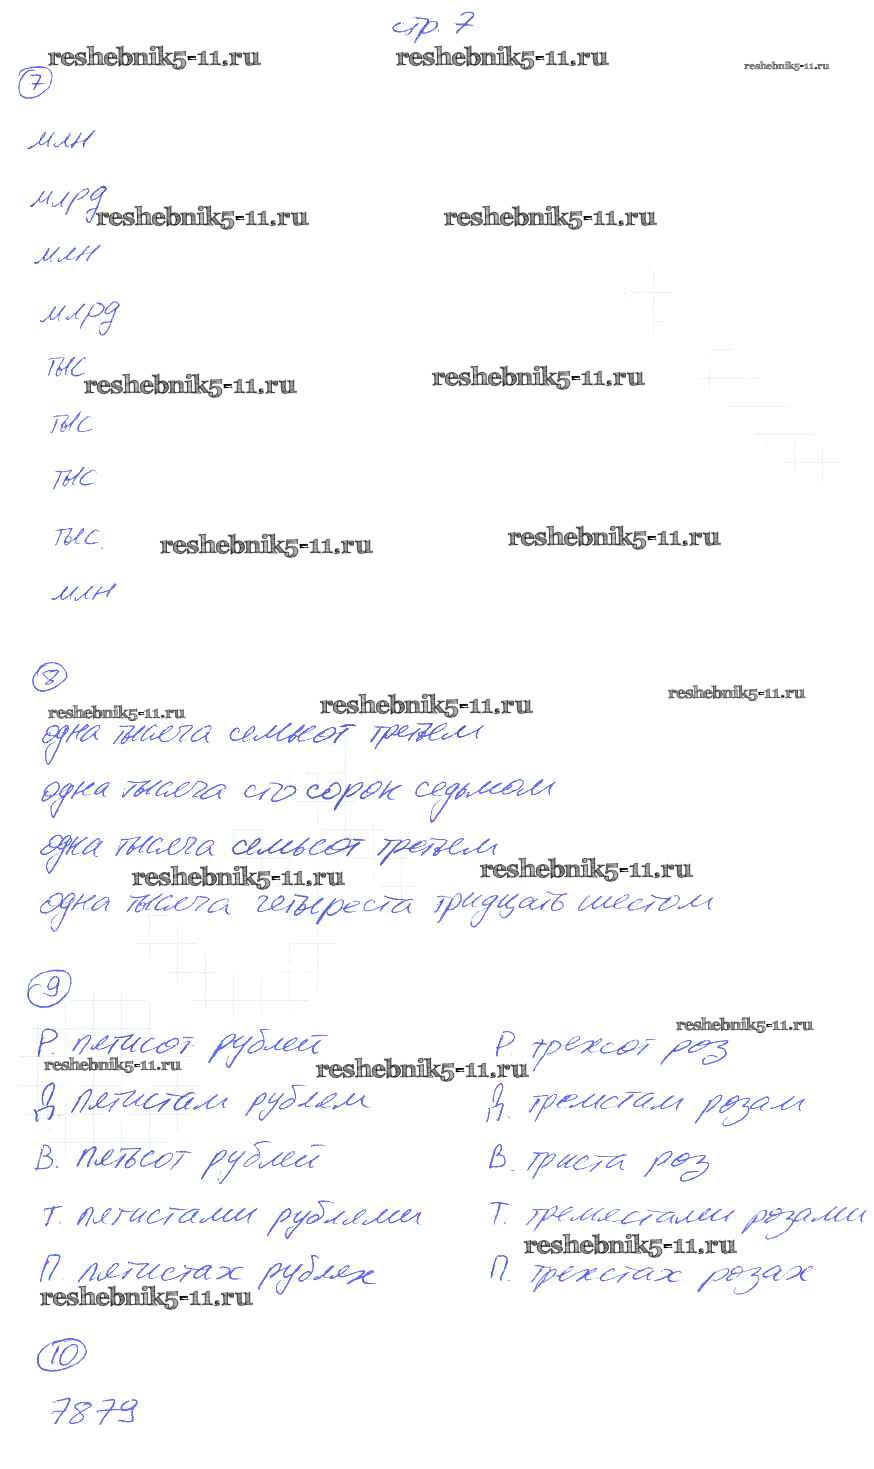 стр. 7
reshebnik5-11.ru reshebnik5-11.ru reshebnik5-11.ru
7
млн
млрд
reshebnik5-11.ru reshebnik5-11.ru
млн
млрд
тыс
reshebnik5-11.ru reshebnik5-11.ru
тыс
тыс
тыс.
reshebnik5-11.ru reshebnik5-11.ru
млн
8
reshebnik5-11.ru reshebnik5-11.ru reshebnik5-11.ru
одна тысяча семьсот третьем
одна тысяча сто сорок седьмом
одна тысяча семьсот третьем
reshebnik5-11.ru reshebnik5-11.ru
одна тысяча четыреста тридцать шестом
9
reshebnik5-11.ru
Р. пятисот рублей Р. трехсот роз
reshebnik5-11.ru reshebnik5-11.ru
Д. пятистам рублям Д. тремстам розам
В. пятьсот рублей В. триста роз
Т. пятистами рублями Т. тремястами розами
reshebnik5-11.ru
П. пятистах рублях П. трехстах розах
reshebnik5-11.ru
10
7879